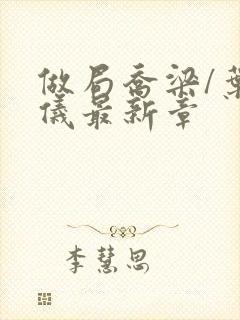 做局乔梁/葉
儀最新章
李慧思